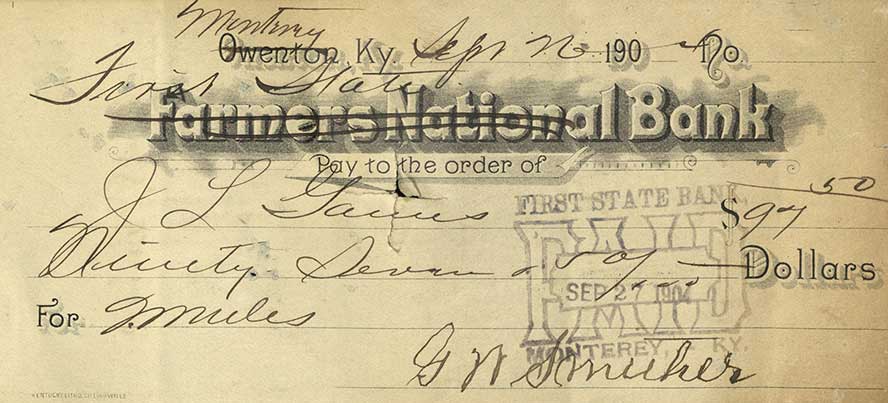 Monterey
Owenton, Ky. Sept 26 1904 No.
First State
Farmers National Bank
Pay to the order of
J L Gaines
$97 50
Ninety Seven & 50/100 Dollars
For 2 mules
FIRST STATE BANK
PAID
SEP 27 1904
MONTEREY, KY.
G W Smither